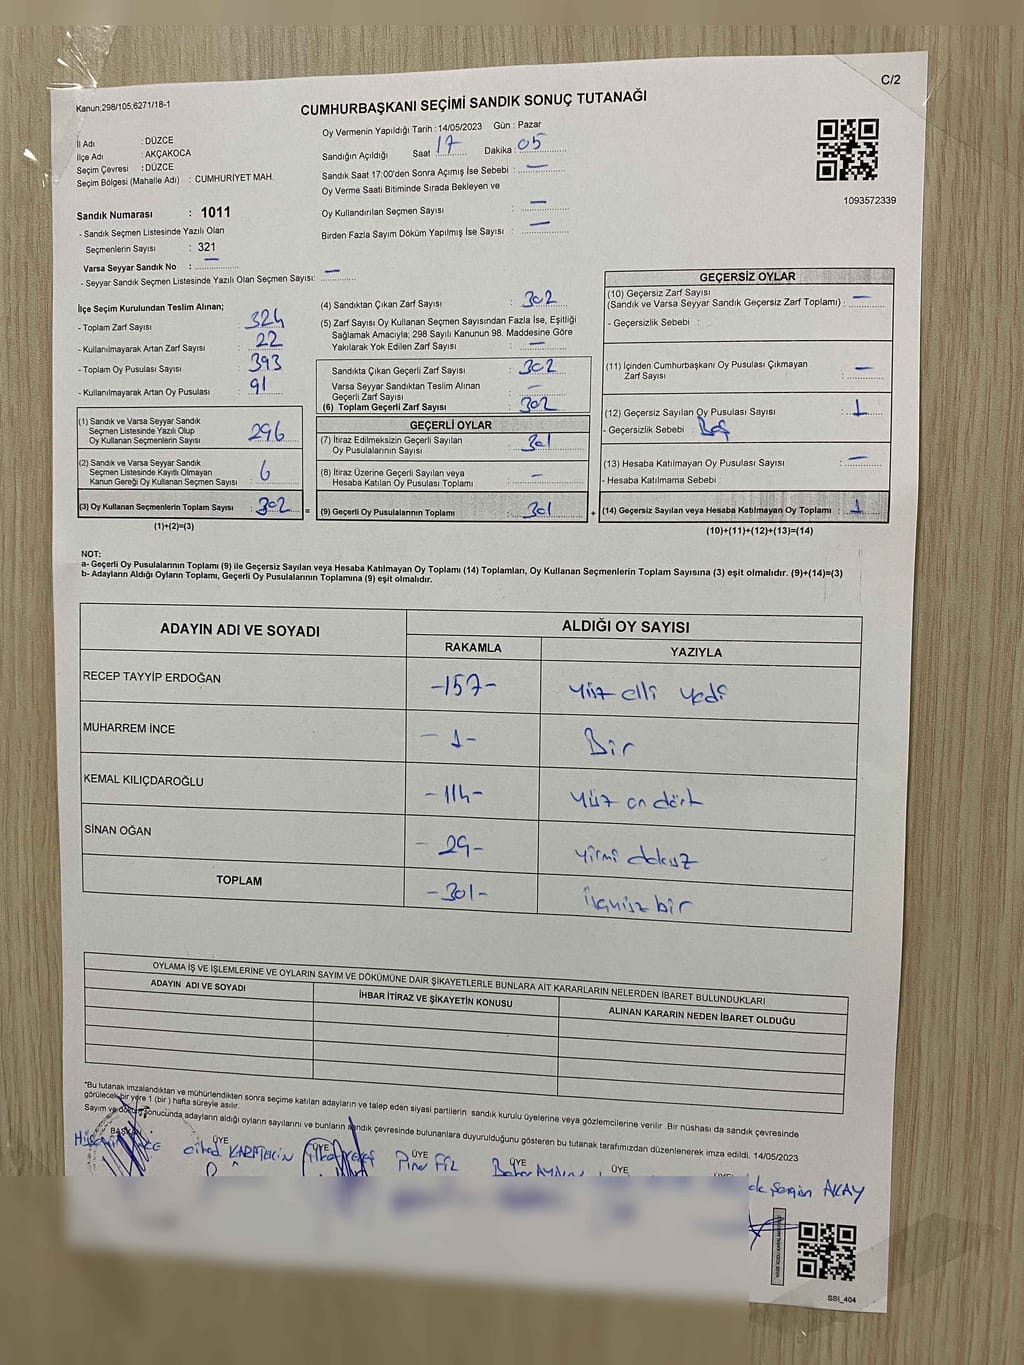 C/2
Kanun;298/105,6271/18-1
CUMHURBAŞKANI SEÇİMİ SANDIK SONUÇ TUTANAĞI
İl Adı : DÜZCE
İlçe Adı : AKÇAKOCA
Seçim Çevresi : DÜZCE
Seçim Bölgesi (Mahalle Adı) : CUMHURİYET MAH.
Sandık Numarası : 1011
- Sandık Seçmen Listesinde Yazılı Olan
Seçmenlerin Sayısı : 321
Varsa Seyyar Sandık No : —
- Seyyar Sandık Seçmen Listesinde Yazılı Olan Seçmen Sayısı: —
Oy Vermenin Yapıldığı Tarih :14/05/2023 Gün : Pazar
Sandığın Açıldığı Saat 17 Dakika : 05
Sandık Saat 17:00'den Sonra Açımış İse Sebebi : —
Oy Verme Saati Bitiminde Sırada Bekleyen ve
Oy Kullandırılan Seçmen Sayısı : —
Birden Fazla Sayım Döküm Yapılmış İse Sayısı : —
1093572339
İlçe Seçim Kurulundan Teslim Alınan;
- Toplam Zarf Sayısı : 324
- Kullanılmayarak Artan Zarf Sayısı : 22
- Toplam Oy Pusulası Sayısı : 393
- Kullanılmayarak Artan Oy Pusulası : 91
(1) Sandık ve Varsa Seyyar Sandık
Seçmen Listesinde Yazılı Olup
Oy Kullanan Seçmenlerin Sayısı : 296
(2) Sandık ve Varsa Seyyar Sandık
Seçmen Listesinde Kayıtlı Olmayan
Kanun Gereği Oy Kullanan Seçmen Sayısı : 6
(3) Oy Kullanan Seçmenlerin Toplam Sayısı : 302 =
(1)+(2)=(3)
(4) Sandıktan Çıkan Zarf Sayısı : 302
(5) Zarf Sayısı Oy Kullanan Seçmen Sayısından Fazla İse, Eşitliği
Sağlamak Amacıyla; 298 Sayılı Kanunun 98. Maddesine Göre
Yakılarak Yok Edilen Zarf Sayısı : —
Sandıkta Çıkan Geçerli Zarf Sayısı : 302
Varsa Seyyar Sandıktan Teslim Alınan
Geçerli Zarf Sayısı : —
(6) Toplam Geçerli Zarf Sayısı : 302
GEÇERLİ OYLAR
(7) İtiraz Edilmeksizin Geçerli Sayılan
Oy Pusulalarının Sayısı : 301
(8) İtiraz Üzerine Geçerli Sayılan veya
Hesaba Katılan Oy Pusulası Toplamı : —
(9) Geçerli Oy Pusulalarının Toplamı : 301 +
GEÇERSİZ OYLAR
(10) Geçersiz Zarf Sayısı
(Sandık ve Varsa Seyyar Sandık Geçersiz Zarf Toplamı) : —
- Geçersizlik Sebebi :
(11) İçinden Cumhurbaşkanı Oy Pusulası Çıkmayan
Zarf Sayısı : —
(12) Geçersiz Sayılan Oy Pusulası Sayısı : 1
- Geçersizlik Sebebi : Boş
(13) Hesaba Katılmayan Oy Pusulası Sayısı : —
- Hesaba Katılmama Sebebi :
(14) Geçersiz Sayılan veya Hesaba Katılmayan Oy Toplamı : 1
(10)+(11)+(12)+(13)=(14)
NOT:
a- Geçerli Oy Pusulalarının Toplamı (9) ile Geçersiz Sayılan veya Hesaba Katılmayan Oy Toplamı (14) Toplamları, Oy Kullanan Seçmenlerin Toplam Sayısına (3) eşit olmalıdır. (9)+(14)=(3)
b- Adayların Aldığı Oyların Toplamı, Geçerli Oy Pusulalarının Toplamına (9) eşit olmalıdır.
ADAYIN ADI VE SOYADI ALDIĞI OY SAYISI
RAKAMLA YAZIYLA
RECEP TAYYİP ERDOĞAN -157- Yüz elli yedi
MUHARREM İNCE -1- Bir
KEMAL KILIÇDAROĞLU -114- Yüz on dört
SİNAN OĞAN -29- yirmi dokuz
TOPLAM -301- üçyüz bir
OYLAMA İŞ VE İŞLEMLERİNE VE OYLARIN SAYIM VE DÖKÜMÜNE DAİR ŞİKAYETLERLE BUNLARA AİT KARARLARIN NELERDEN İBARET BULUNDUKLARI
ADAYIN ADI VE SOYADI İHBAR İTİRAZ VE ŞİKAYETİN KONUSU ALINAN KARARIN NEDEN İBARET OLDUĞU
"Bu tutanak imzalandıktan ve mühürlendikten sonra seçime katılan adayların ve talep eden siyasi partilerin sandık kurulu üyelerine veya gözlemcilerine verilir .Bir nüshası da sandık çevresinde
görülecek bir yere 1 (bir ) hafta süreyle asılır.
Sayım ve döküm sonucunda adayların aldığı oyların sayılarını ve bunların sandık çevresinde bulunanlara duyurulduğunu gösteren bu tutanak tarafımızdan düzenlenerek imza edildi. 14/05/2023
BAŞKAN ÜYE ÜYE ÜYE ÜYE ÜYE
Pınar FİL AKAY
SSI_404